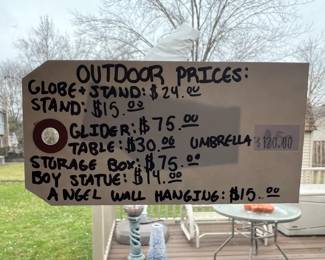 OUTDOOR PRICES:
GLOBE + STAND: $24.00
STAND: $15.00
GLIDER: $75.00
TABLE: $30.00 UMBRELLA
STORAGE BOX: $75.00
BOY STATUE: $14.00
ANGEL WALL HANGING: $15.00